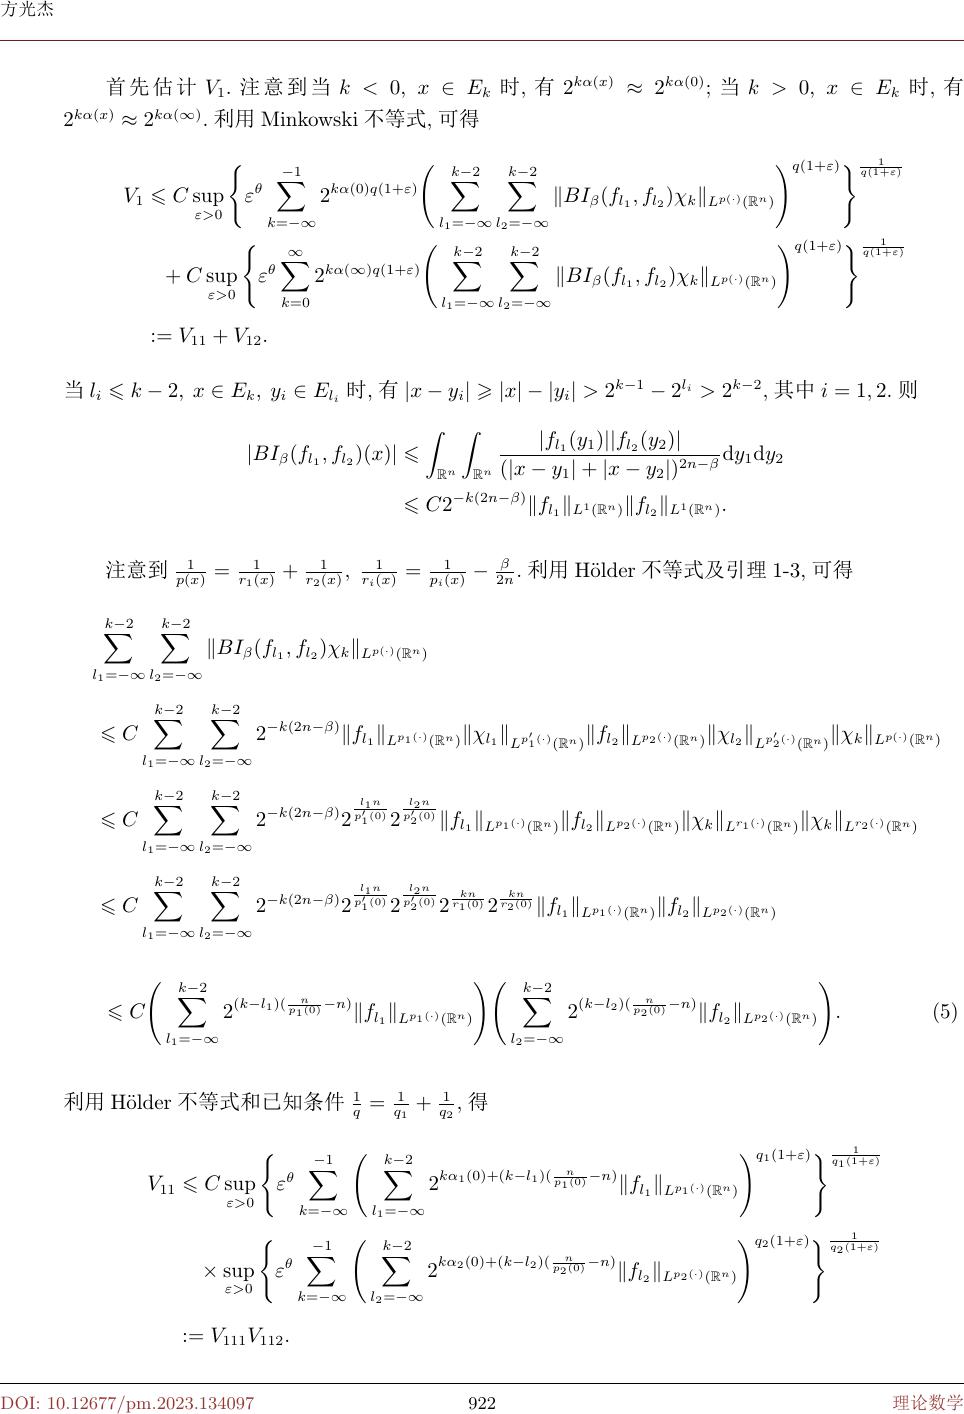 方光杰
首先估计 $V_1$. 注意到当 $k < 0,\ x \in E_k$ 时, 有 $2^{k\alpha(x)} \approx 2^{k\alpha(0)}$; 当 $k > 0,\ x \in E_k$ 时, 有
$2^{k\alpha(x)} \approx 2^{k\alpha(\infty)}$. 利用 Minkowski 不等式, 可得
$V_1 \leqslant C \sup_{\varepsilon>0} \left\{ \varepsilon^\theta \sum_{k=-\infty}^{-1} 2^{k\alpha(0)q(1+\varepsilon)} \left( \sum_{l_1=-\infty}^{k-2} \sum_{l_2=-\infty}^{k-2} \|BI_\beta(f_{l_1}, f_{l_2})\chi_k\|_{L^{p(\cdot)}(\mathbb{R}^n)} \right)^{q(1+\varepsilon)} \right\}^{\frac{1}{q(1+\varepsilon)}}$
$+ C \sup_{\varepsilon>0} \left\{ \varepsilon^\theta \sum_{k=0}^{\infty} 2^{k\alpha(\infty)q(1+\varepsilon)} \left( \sum_{l_1=-\infty}^{k-2} \sum_{l_2=-\infty}^{k-2} \|BI_\beta(f_{l_1}, f_{l_2})\chi_k\|_{L^{p(\cdot)}(\mathbb{R}^n)} \right)^{q(1+\varepsilon)} \right\}^{\frac{1}{q(1+\varepsilon)}}$
$:= V_{11} + V_{12}.$
当 $l_i \leqslant k-2,\ x \in E_k,\ y_i \in E_{l_i}$ 时, 有 $|x-y_i| \geqslant |x| - |y_i| > 2^{k-1} - 2^{l_i} > 2^{k-2}$, 其中 $i = 1, 2$. 则
$|BI_\beta(f_{l_1}, f_{l_2})(x)| \leqslant \int_{\mathbb{R}^n} \int_{\mathbb{R}^n} \frac{|f_{l_1}(y_1)||f_{l_2}(y_2)|}{(|x-y_1|+|x-y_2|)^{2n-\beta}} \mathrm{d}y_1 \mathrm{d}y_2$
$\leqslant C 2^{-k(2n-\beta)} \|f_{l_1}\|_{L^1(\mathbb{R}^n)} \|f_{l_2}\|_{L^1(\mathbb{R}^n)}.$
注意到 $\frac{1}{p(x)} = \frac{1}{r_1(x)} + \frac{1}{r_2(x)},\ \frac{1}{r_i(x)} = \frac{1}{p_i(x)} - \frac{\beta}{2n}$. 利用 Hölder 不等式及引理 1-3, 可得
$\sum_{l_1=-\infty}^{k-2} \sum_{l_2=-\infty}^{k-2} \|BI_\beta(f_{l_1}, f_{l_2})\chi_k\|_{L^{p(\cdot)}(\mathbb{R}^n)}$
$\leqslant C \sum_{l_1=-\infty}^{k-2} \sum_{l_2=-\infty}^{k-2} 2^{-k(2n-\beta)} \|f_{l_1}\|_{L^{p_1(\cdot)}(\mathbb{R}^n)} \|\chi_{l_1}\|_{L^{p_1'(\cdot)}(\mathbb{R}^n)} \|f_{l_2}\|_{L^{p_2(\cdot)}(\mathbb{R}^n)} \|\chi_{l_2}\|_{L^{p_2'(\cdot)}(\mathbb{R}^n)} \|\chi_k\|_{L^{p(\cdot)}(\mathbb{R}^n)}$
$\leqslant C \sum_{l_1=-\infty}^{k-2} \sum_{l_2=-\infty}^{k-2} 2^{-k(2n-\beta)} 2^{\frac{l_1 n}{p_1'(0)}} 2^{\frac{l_2 n}{p_2'(0)}} \|f_{l_1}\|_{L^{p_1(\cdot)}(\mathbb{R}^n)} \|f_{l_2}\|_{L^{p_2(\cdot)}(\mathbb{R}^n)} \|\chi_k\|_{L^{r_1(\cdot)}(\mathbb{R}^n)} \|\chi_k\|_{L^{r_2(\cdot)}(\mathbb{R}^n)}$
$\leqslant C \sum_{l_1=-\infty}^{k-2} \sum_{l_2=-\infty}^{k-2} 2^{-k(2n-\beta)} 2^{\frac{l_1 n}{p_1'(0)}} 2^{\frac{l_2 n}{p_2'(0)}} 2^{\frac{kn}{r_1(0)}} 2^{\frac{kn}{r_2(0)}} \|f_{l_1}\|_{L^{p_1(\cdot)}(\mathbb{R}^n)} \|f_{l_2}\|_{L^{p_2(\cdot)}(\mathbb{R}^n)}$
$\leqslant C \left( \sum_{l_1=-\infty}^{k-2} 2^{(k-l_1)(\frac{n}{p_1(0)}-n)} \|f_{l_1}\|_{L^{p_1(\cdot)}(\mathbb{R}^n)} \right) \left( \sum_{l_2=-\infty}^{k-2} 2^{(k-l_2)(\frac{n}{p_2(0)}-n)} \|f_{l_2}\|_{L^{p_2(\cdot)}(\mathbb{R}^n)} \right).$ (5)
利用 Hölder 不等式和已知条件 $\frac{1}{q} = \frac{1}{q_1} + \frac{1}{q_2}$, 得
$V_{11} \leqslant C \sup_{\varepsilon>0} \left\{ \varepsilon^\theta \sum_{k=-\infty}^{-1} \left( \sum_{l_1=-\infty}^{k-2} 2^{k\alpha_1(0)+(k-l_1)(\frac{n}{p_1(0)}-n)} \|f_{l_1}\|_{L^{p_1(\cdot)}(\mathbb{R}^n)} \right)^{q_1(1+\varepsilon)} \right\}^{\frac{1}{q_1(1+\varepsilon)}}$
$\times \sup_{\varepsilon>0} \left\{ \varepsilon^\theta \sum_{k=-\infty}^{-1} \left( \sum_{l_2=-\infty}^{k-2} 2^{k\alpha_2(0)+(k-l_2)(\frac{n}{p_2(0)}-n)} \|f_{l_2}\|_{L^{p_2(\cdot)}(\mathbb{R}^n)} \right)^{q_2(1+\varepsilon)} \right\}^{\frac{1}{q_2(1+\varepsilon)}}$
$:= V_{111} V_{112}.$
DOI: 10.12677/pm.2023.134097 922 理论数学